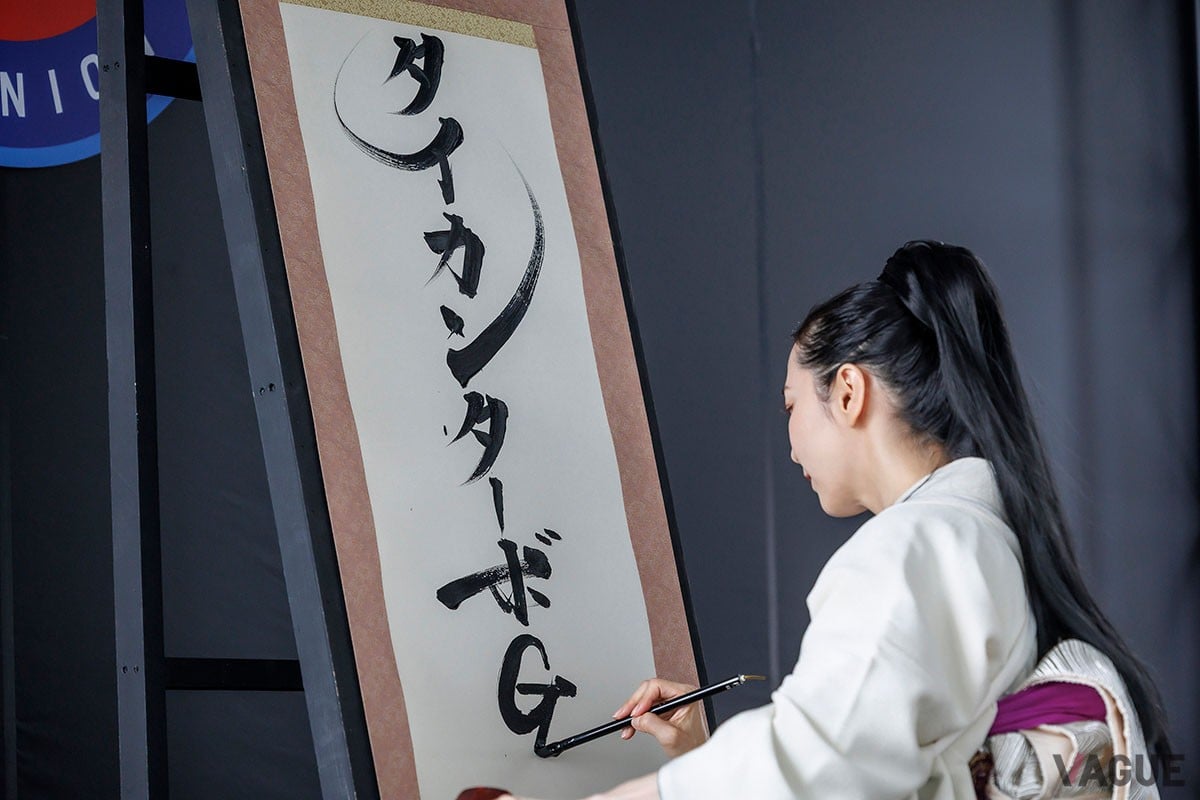 NIC
タイカンターボG
VAGUE